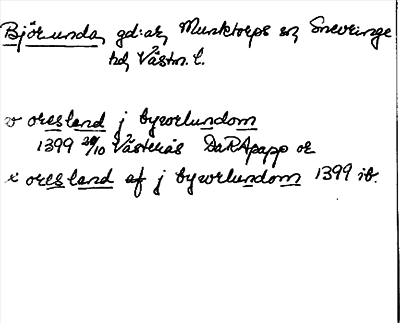 Björunda, gd:ar, Munktorps sn, Snevringe
hd, Västm. l.
v oresland j byrorlundom
1399 29/10 Västerås DaRApapp or
x oresland af j byrorlundom 1399 ib.